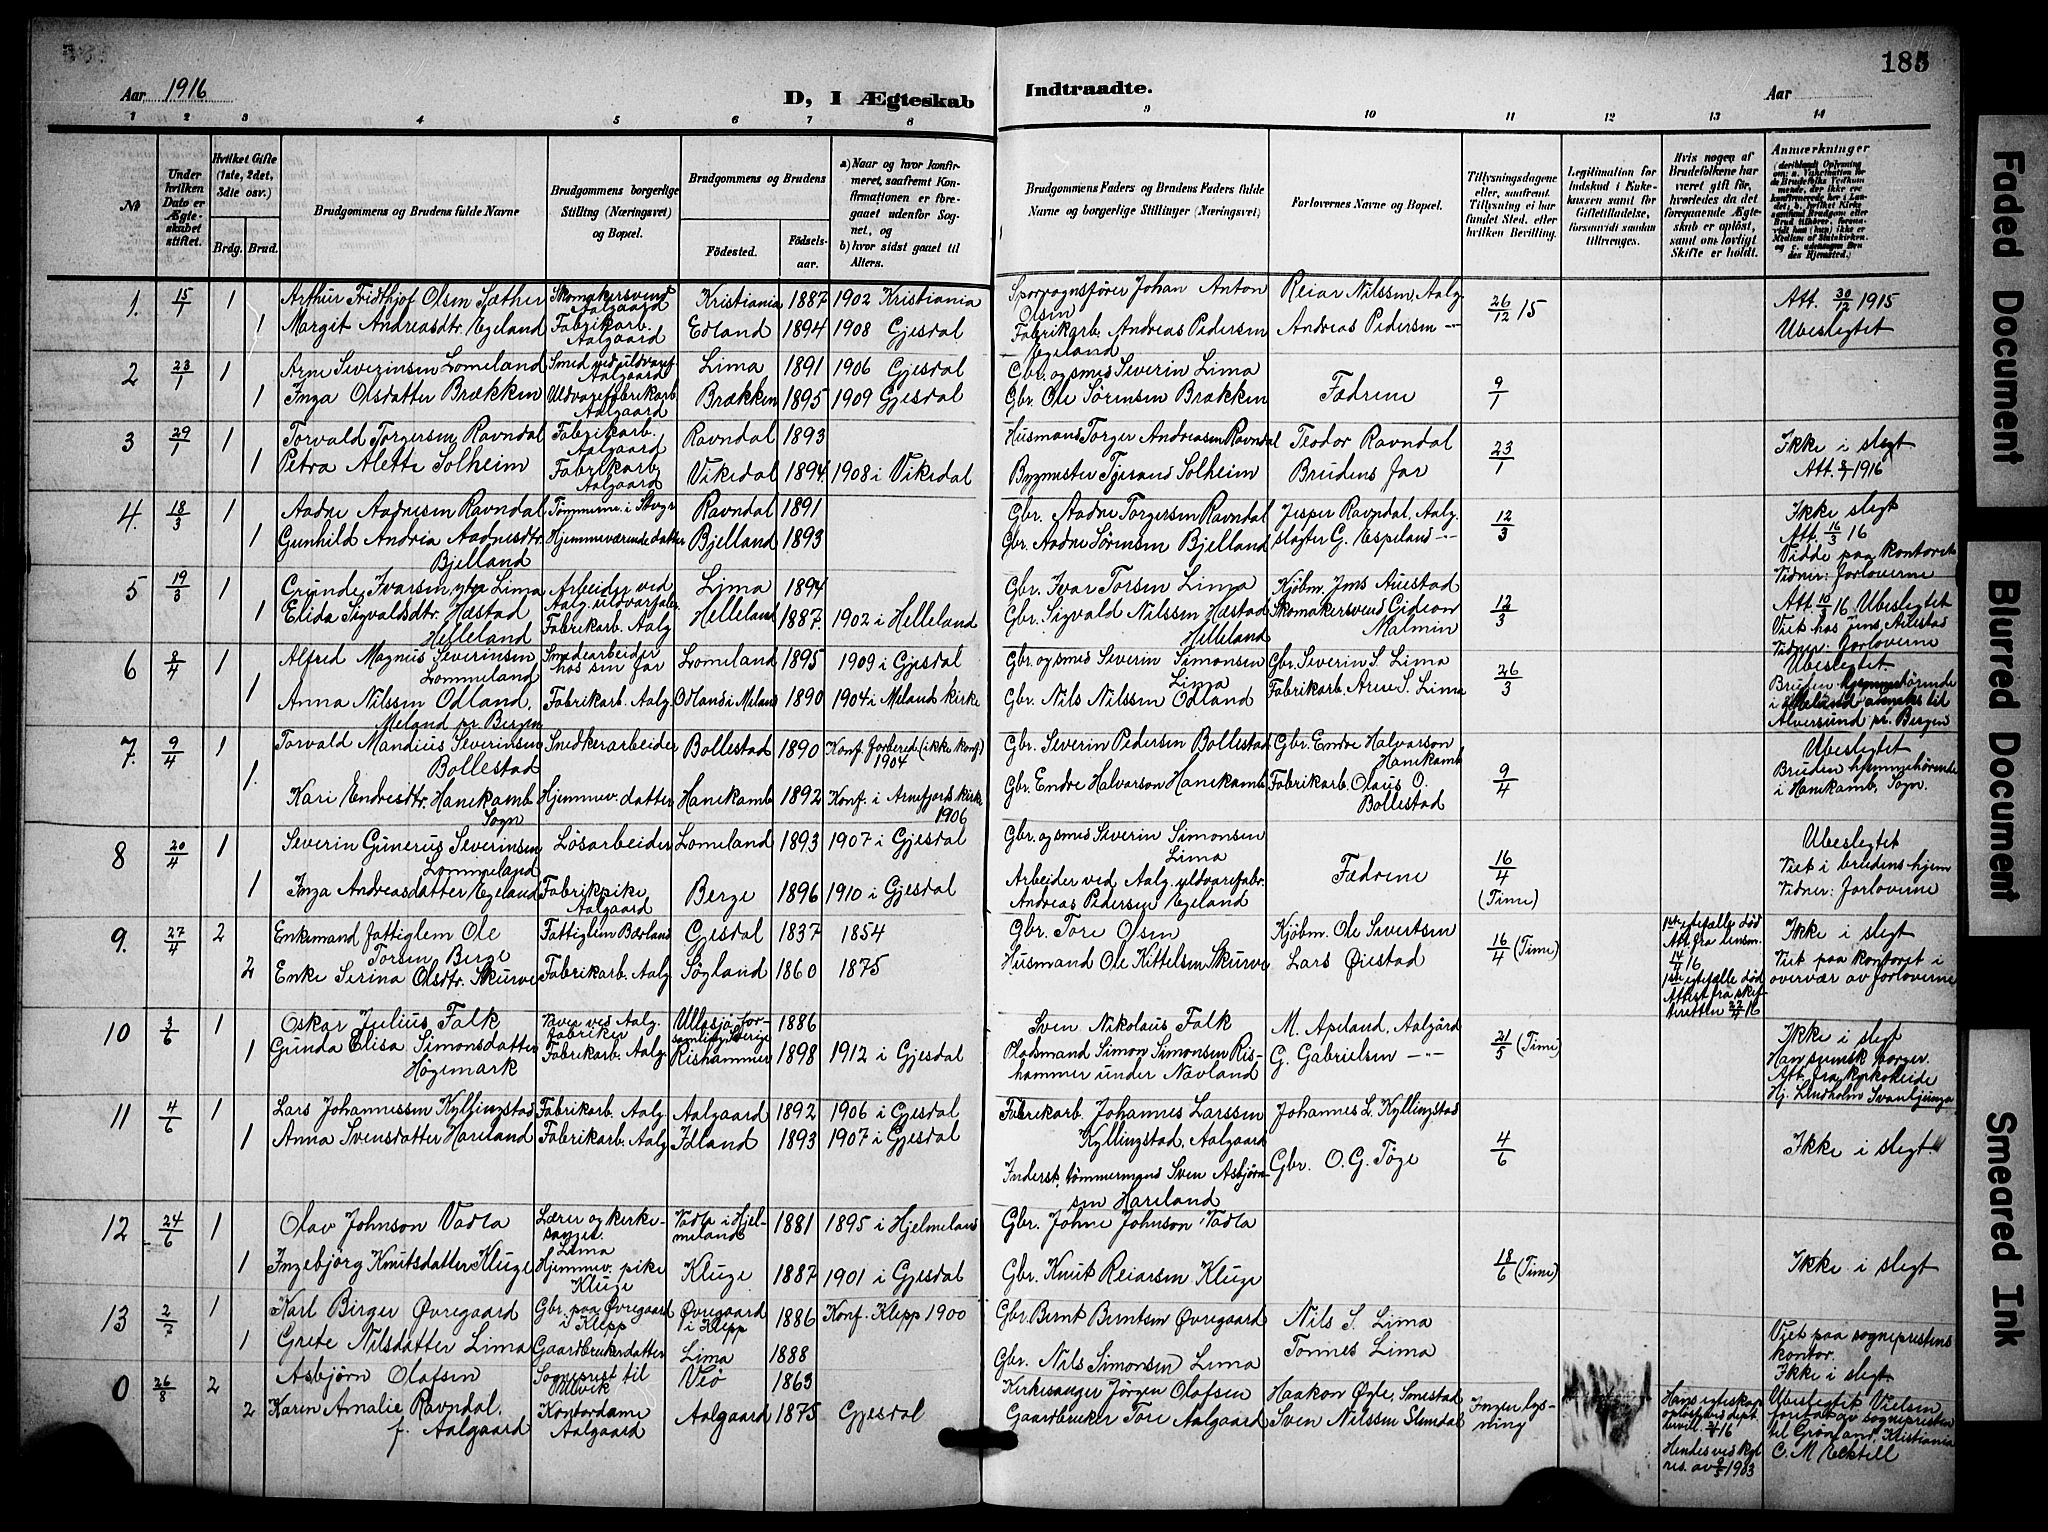 185
Aar 1916
D, I Ægteskab Indtraadte.
Aar
1 2 3 4 5 6 7 8 9 10 11 12 13 14
Nr.
Under hvilken Dato er Ægteskabet stiftet.
Hvilket Gifte (1ste, 2det, 3die osv.)
Brdg. Brud.
Brudgommens og Brudens fulde Navne
Brudgommens borgerlige Stilling (Næringsvei) og Bopæl.
Brudgommens og Brudens
Fødested. Fødsels-aar.
a) Naar og hvor konfirmeret, saafremt Konfirmationen er foregaaet udenfor Sognet, og
b) hvor sidst gaaet til Alters.
Brudgommens Faders og Brudens Faders fulde Navne og borgerlige Stillinger (Næringsvei)
Forlovernes Navne og Bopæl.
Tillysningsdagene eller, saafremt Tillysning ei har fundet Sted, efter hvilken Bevilling.
Legitimation for Indskud i Enkekassen samt for Giftetilladelse, forsaavidt saadan tiltrænges.
Hvis nogen af Brudefolkene har været gift før, hvorledes da det foregaaende Ægteskab er opløst, samt om lovligt Skifte er holdt.
Anmærkninger
1. 15/1 1 Arthur Fridthjof Olsen Sæther Skomakersvend Aalgaard Kristiania 1887 1902 Kristiania Johan Anton Olsen Reiar Nilssen, Aalg. 26/12 15 Att. 30/12 1915
1 Margit Andreasdtr. Egeland Fabrikarb. Aalgaard Edland 1894 1908 Gjesdal Fabrikarb. Andreas Pedersen Egeland Andreas Pedersen -"- Ubeslegtet
2 23/1 1 Arne Severinsen Lomeland Smed ved uldvaref. Aalgaard Lima 1891 1906 Gjesdal Gbr. og smed Severin Lima Fædrene 9/1
1 Inga Olsdatter Brækken Uldvarefabrikarb. Aalgaard Brækken 1895 1909 Gjesdal Gbr. Ole Sørensen Brækken
3 29/1 1 Torvald Torgersen Ravndal Fabrikarb. Aalgaard Ravndal 1893 Husmand Torger Andreasen Ravndal Teodor Ravndal 23/1 Ikke i slegt
1 Petra Alette Solheim Fabrikarb. Aalgaard Vikedal 1894 1908 i Vikedal Bygmester Tjerand Solheim Brudens far Att. 1916
4. 18/3 1 Aadne Aadnesen Ravndal Tømmerm. i Stvgr Ravndal 1891 Gbr. Aadne Torgersen Ravndal Jesper Ravndal, Aalg. 12/3 Ikke slegt
1 Gunhild Andrea Aadnesdtr. Bjelland Hjemmeværende datter Bjelland 1893 Gbr. Aadne Sørensen Bjelland slagter G. Espeland -"- Att. 16/3 16
Viede paa kontoret
Vidner: Forloverne
5 19/3 1 Grunde Ivarsen Lima Arbeider ved Aalg. uldvarefabr. Lima 1894 Gbr. Ivar Torsen Lima Kjøbm. Jens Auestad 12/3 Att. 10/3 16 Ubeslegtet
1 Elida Sigvaldsdtr. Hæstad Helleland Fabrikarb. Aalg. Helleland 1887. 1902 i Helleland Gbr. Sigvald Nilssen Hæstad Helleland Skomakersvend Gideon Malmin Viet hos Jens Auestad
Vidner: Forloverne
6 8/4 1 Alfred Magnus Severinsen Lommeland Smedearbeider hos sin far Lomeland 1895 1909 i Gjesdal Gbr. og smed Severin Simonsen Lima Gbr. Severin S. Lima 26/3 Ubeslegtet.
1 Anna Nilssen Odland, Meland pr. Bergen Fabrikarb. Aalg. Odland i Meland 1890 1904 i Meland kirke Gbr. Nils Nilssen Odland Fabrikarb. Arne S. Lima Bruden hjemmehørende i Meland, anneks til Alversund pr. Bergen
7. 9/4 1 Torvald Mandius Severinsen Bollestad Snedkerarbeider Bollestad 1890 Konf. forbered. (ikke konf) 1904 Gbr. Severin Pedersen Bollestad Gbr. Endre Halvarson Hanekamb 9/4 Ubeslegtet
1. Kari Endresdtr. Hanekamb Sogn Hjemmev. datter Hanekamb 1892 Konf. i Arnefjord kirke 1906 Gbr. Endre Halvarson Hanekamb Fabrikarb. Olaus O. Bollestad Bruden hjemmehørende i Hanekamb, Sogn.
8 20/4 1 Severin Gunerus Severinsen Lommeland Løsarbeider Lomeland 1893 1907 i Gjesdal Gbr. og smed Severin Simonsen Lima Fædrene 16/4 (Time) Ubeslegtet
1 Inga Andreasdatter Egeland Fabrikpike Aalgaard Berge 1896 1910 i Gjesdal Arbeider ved Aalg. uldvarefabr. Andreas Pedersen Egeland Viet i brudens hjem
Vidner: Forloverne
9. 27/4 2 Enkemand fattiglem Ole Torsen Berge Fattiglem Bærland Gjesdal 1837 1854 Gbr. Tore Olsen Kjøbm. Ole Sivertsen 16/4 (Time) 1ste egtefælle død Att. fra lensm. 14/4 16 Ikke i slegt
2 Enke Serina Olsdtr. Skurve Fabrikarb. Aalg. Søyland 1860 1875 Husmand Ole Kittelsen Skurve Lars Ørestad 1ste egtefælle død Attest fra skifteretten 22/4 16 Viet paa kontoret i overvær av forloverne
10 3/6 1 Oskar Julius Falk Væver ved Aalg. Fabriker Ullasjö forsamling Sverige 1886 Sven Nikolaus Falk M. Apeland, Aalgård 21/5 (Time) Ikke i slegt
1 Gunda Elisa Simonsdatter Høgemark Fabrikarb. Aalg. Rishammer 1898 1912 i Gjesdal Pladsmand Simon Simonsen Rishammer under Navland G. Gabrielsen -"- Han svensk borger. Att. fra kyrkoheide Hj. Lindholm Svenljunga
11 4/6 1 Lars Johannessen Kyllingstad Fabrikarb. Aalg. Aalgaard 1892 1906 i Gjesdal Fabrikarb. Johannes Larssen Kyllingstad, Aalgaard Johannes L. Kyllingstad 4/6
1 Anna Svensdatter Hareland Fabrikarb. Aalg. Idland 1893 1907 i Gjesdal Inderst, tømmermand Sven Asbjørnsen Hareland Gbr. O. G. Tøge Ikke i slegt
12 24/6 1 Olav Johnson Vadla Lærer og kirkesanger. Lima Vadla i Hjelmeland 1881 1895 i Hjelmeland Gbr. Johne Johnson Vadla 18/6 (Time)
1 Ingebjørg Knutsdatter Kluge Hjemmev. pike Kluge Kluge 1887 1901 i Gjesdal Gbr. Knut Reiarsen Kluge Ikke i slegt
13 2/7 1 Karl Birger Øvregaard Gbr. paa Øvregaard i Klepp Øvregaard i Klepp 1886 Konf. Klepp 1900 Gbr. Bernt Berntsen Øvregaard Nils S. Lima
1 Grete Nilsdatter Lima Gaardbrukerdatter Lima 1888 Gbr. Nils Simonsen Lima Tønnes Lima Viet paa sogneprestens kontor.
Ikke i slegt
0 26/8 2 Asbjørn Olafsen Sogneprest til Ullvik Veø 1863 Kirkesanger Jørgen Olafsen Haakon Øgle, Smestad Ingen lysning Hans egteskap opløst ved dept. bevill. 16 Ubeslegtet Vielsen foretat av sognepresten til Grønland, Kristiania
2 Karen Amalie Ravndal, f. Aalgaard Kontordame Aalgaard Aalgaard 1875 Gjesdal Gaardbruker Tore Aalgaard Sven Nilssen Hendes ved kgl. res. av 1903 C. M. Eckell
Faded Document
Blurred Document
Smeared Ink